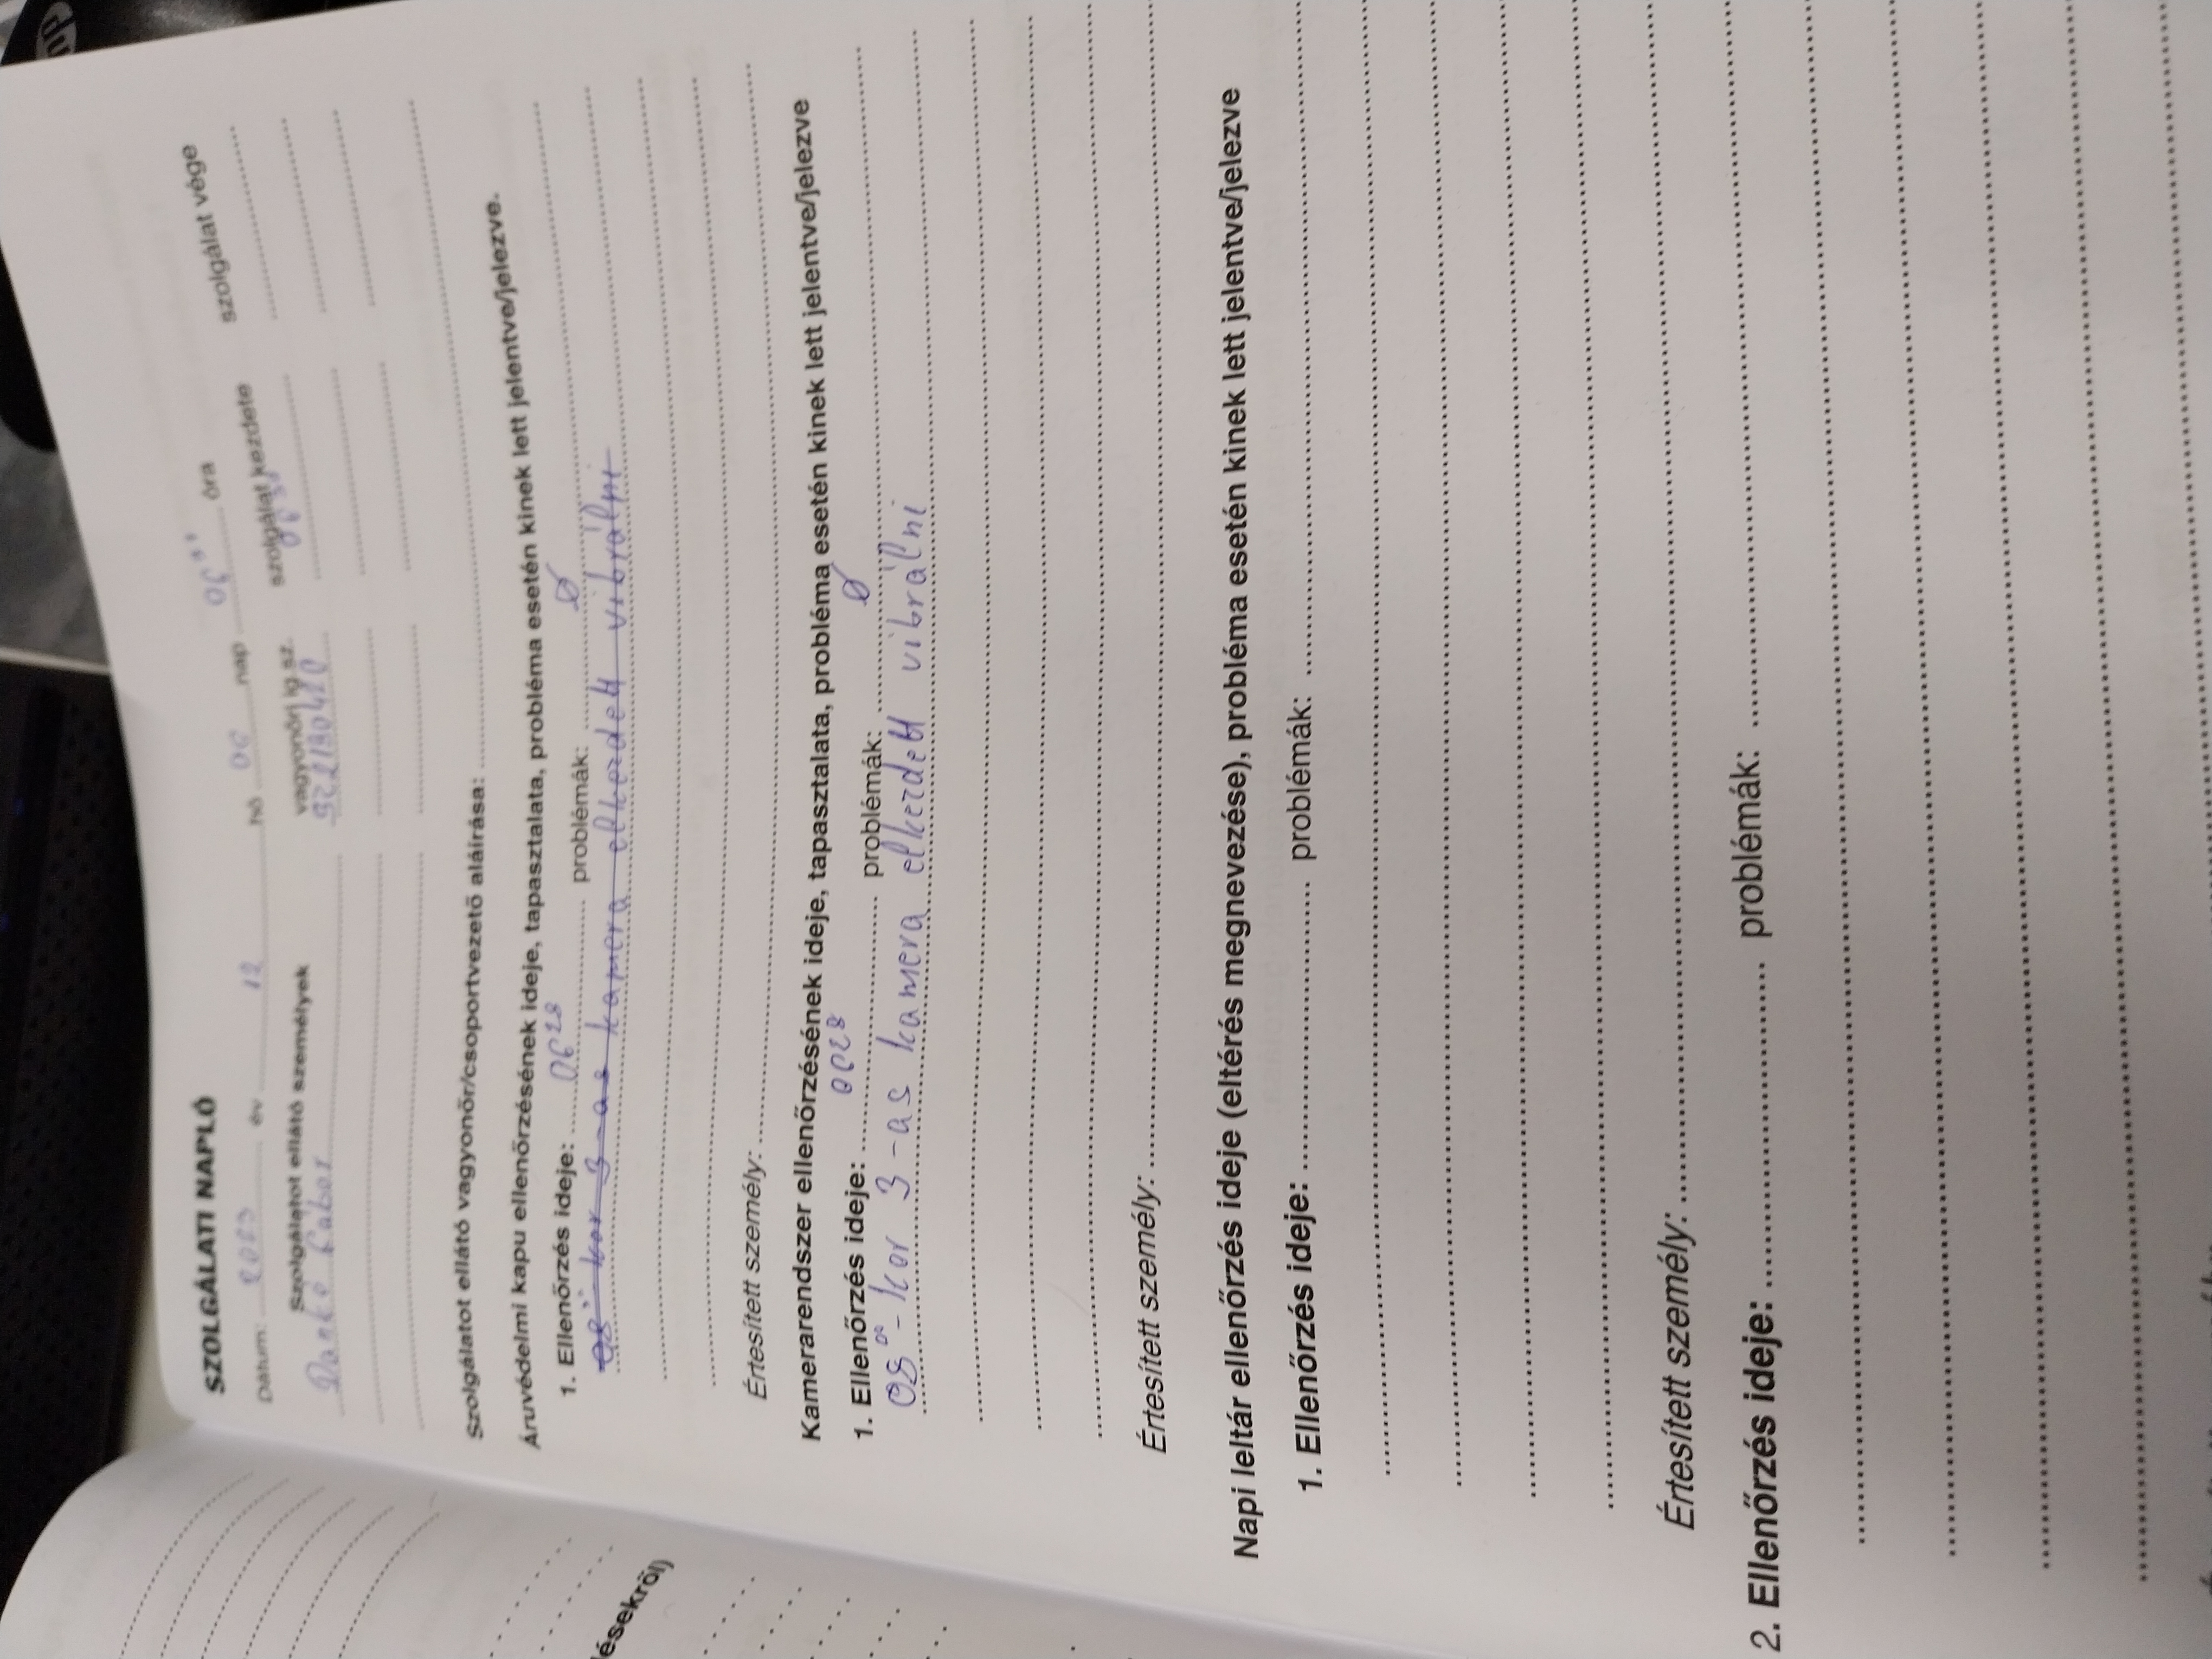 SZOLGÁLATI NAPLÓ
Dátum: 2023 év 12 hó 06 nap 06³⁰ óra
Szolgálatot ellátó személyek vagyonőri ig.sz. szolgálat kezdete szolgálat vége
Dankó Gábor
Szolgálatot ellátó vagyonőr/csoportvezető aláírása:
Áruvédelmi kapu ellenőrzésének ideje, tapasztalata, probléma esetén kinek lett jelentve/jelezve.
1. Ellenőrzés ideje: 06²⁸ problémák: Ø
08°°-kor 3-as kamera elkezdett vibrálni
Értesített személy:
Kamerarendszer ellenőrzésének ideje, tapasztalata, probléma esetén kinek lett jelentve/jelezve
1. Ellenőrzés ideje: 0628 problémák: Ø
08°°-kor 3-as kamera elkezdett vibrálni
Értesített személy:
Napi leltár ellenőrzés ideje (eltérés megnevezése), probléma esetén kinek lett jelentve/jelezve
1. Ellenőrzés ideje: problémák:
Értesített személy:
2. Ellenőrzés ideje: problémák:
ésekről)